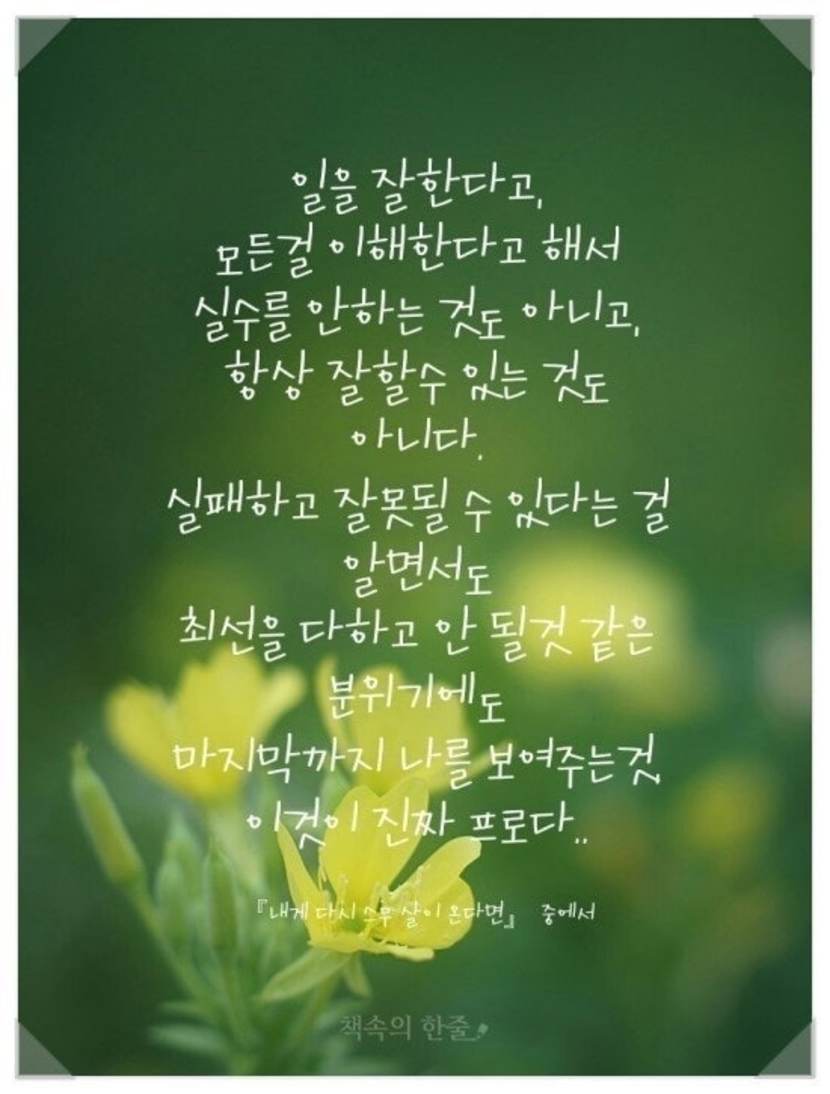 일을 잘한다고,
모든걸 이해한다고 해서
실수를 안하는 것도 아니고,
항상 잘할수 있는 것도
아니다.
실패하고 잘못될 수 있다는 걸
알면서도
최선을 다하고 안 될것 같은
분위기에도
마지막까지 나를 보여주는것,
이것이 진짜 프로다..
『내게 다시 스무 살이 온다면』 중에서
책속의 한줄